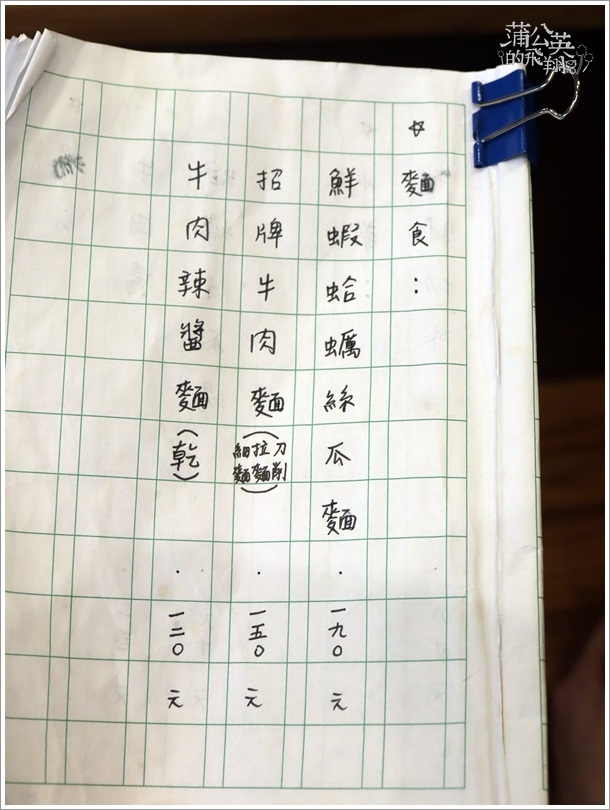 ☆麵食：
鮮蝦蛤蠣絲瓜麵．一九○元
招牌牛肉麵（刀削 拉麵 細麵）．一五○元
牛肉辣醬麵（乾）．一二○元
蒲公英
的飛翔